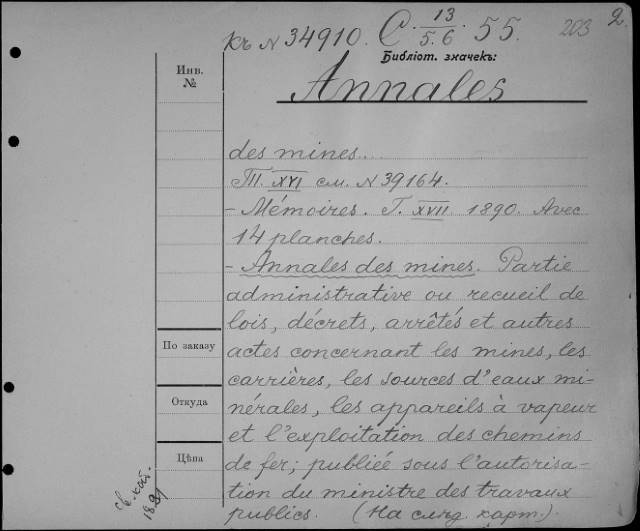 Къ N 34910. C. 13/5.6 55. 203 2.
Библіот. значекъ:
Инв. №
Annales
des mines...
Т. XVI см. N 39164.
- Mémoires. T. XVII 1890. Avec
14 planches.
- Annales des mines. Partie
administrative ou recueil de
lois, décrets, arrêtés et autres
По заказу
actes concernant les mines, les
carrières, les sources d'eaux mi-
Откуда
nérales, les appareils à vapeur
et l'exploitation des chemins
Цѣна
de fer; publiée sous l'autorisa-
tion du ministre des travaux
publics. (На слѣд. карт.).
1891